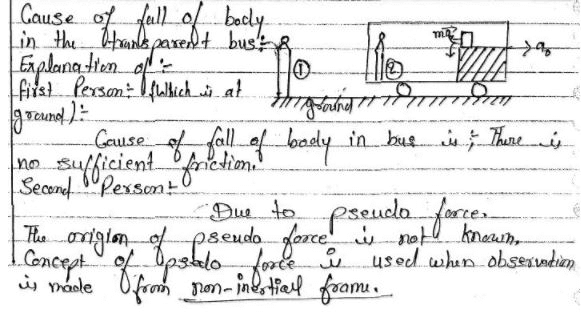 Cause of fall of body
in the transparent bus:-
Explanation of :-
first Person:- (Which is at
ground):-
① ② ma a₀
ground
Cause of fall of body in bus is ; There is
no sufficient friction.
Second Person:-
Due to pseudo force.
The origion of pseudo force is not known.
Concept of pseudo force is used when observation
is made from non-inertial frame.